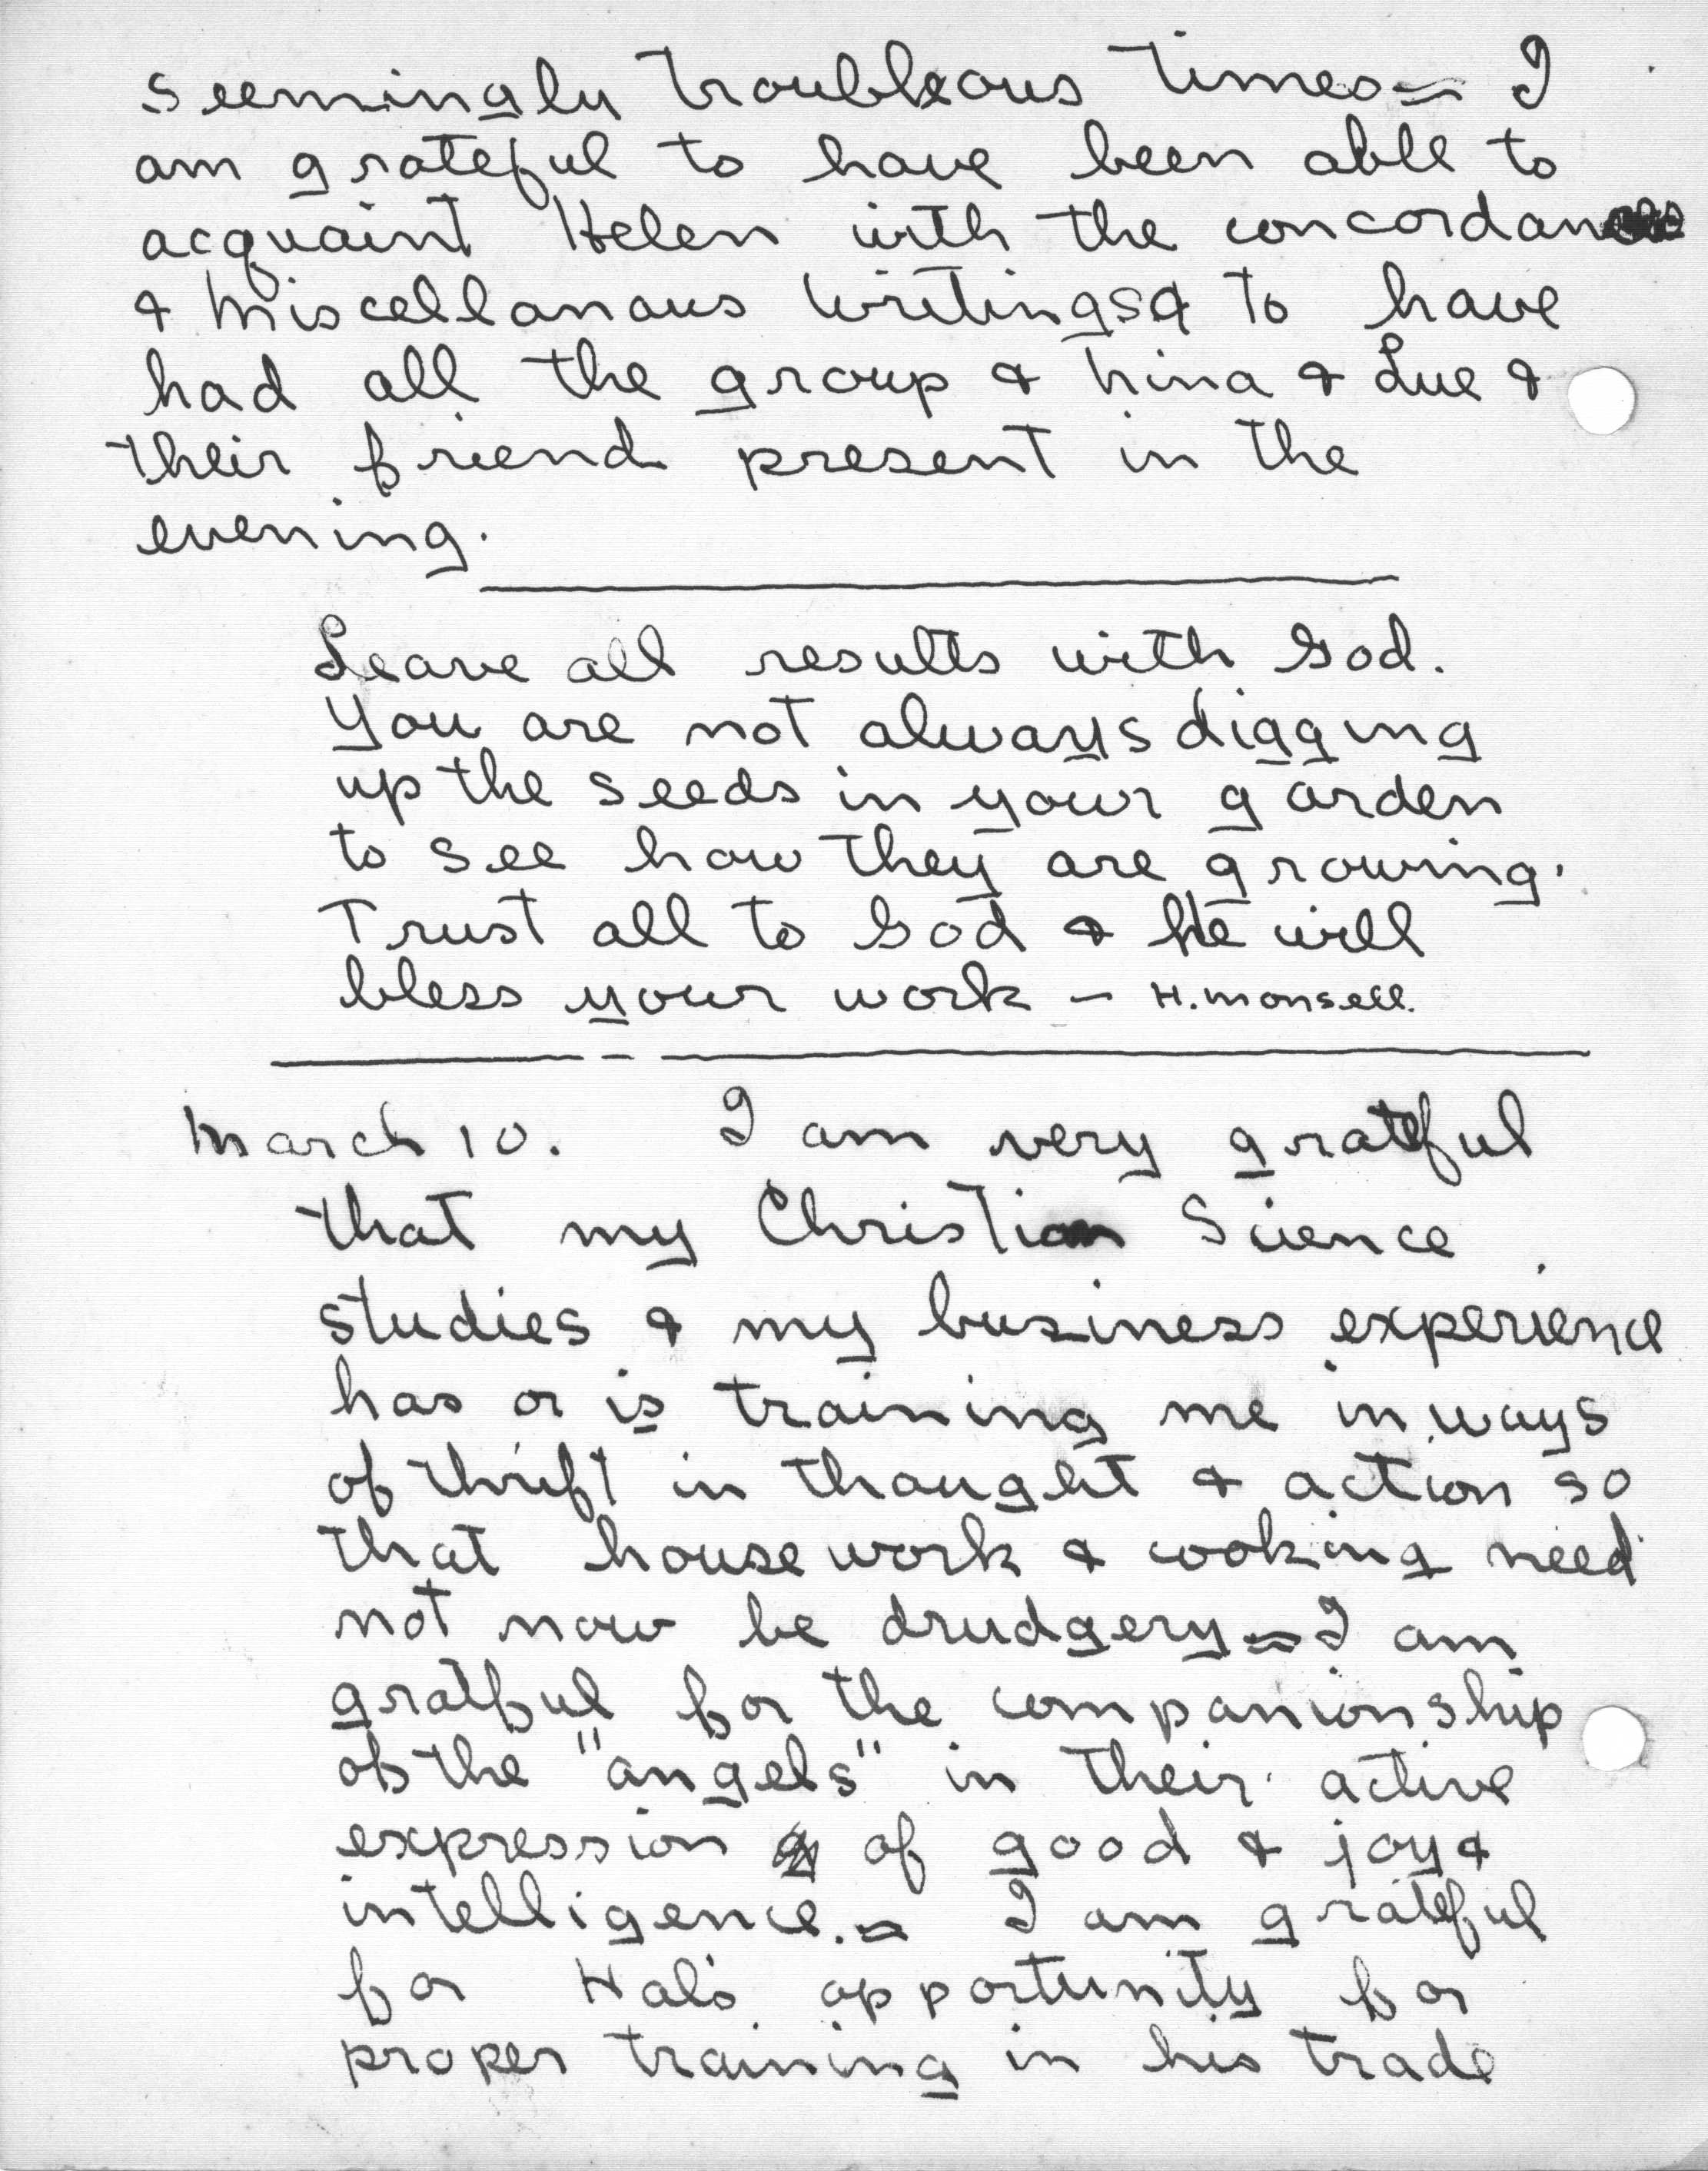 seemingly troubleous times — I
am grateful to have been able to
acquaint Helen with the concordance
& Miscellanous Writings & to have
had all the group & Nina & Lue &
their friend present in the
evening.
Leave all results with God.
You are not always digging
up the seeds in your garden
to see how they are growing.
Trust all to God & He will
bless your work — H. Monsell.
March 10. I am very grateful
that my Christian Science
studies & my business experience
has or is training me in ways
of thrift in thought & action so
that house work & cooking need
not now be drudgery — I am
gratful for the companionship
of the "angels" in their active
expression of good & joy &
intelligence. — I am grateful
for Hal's opportunity for
proper training in his trade